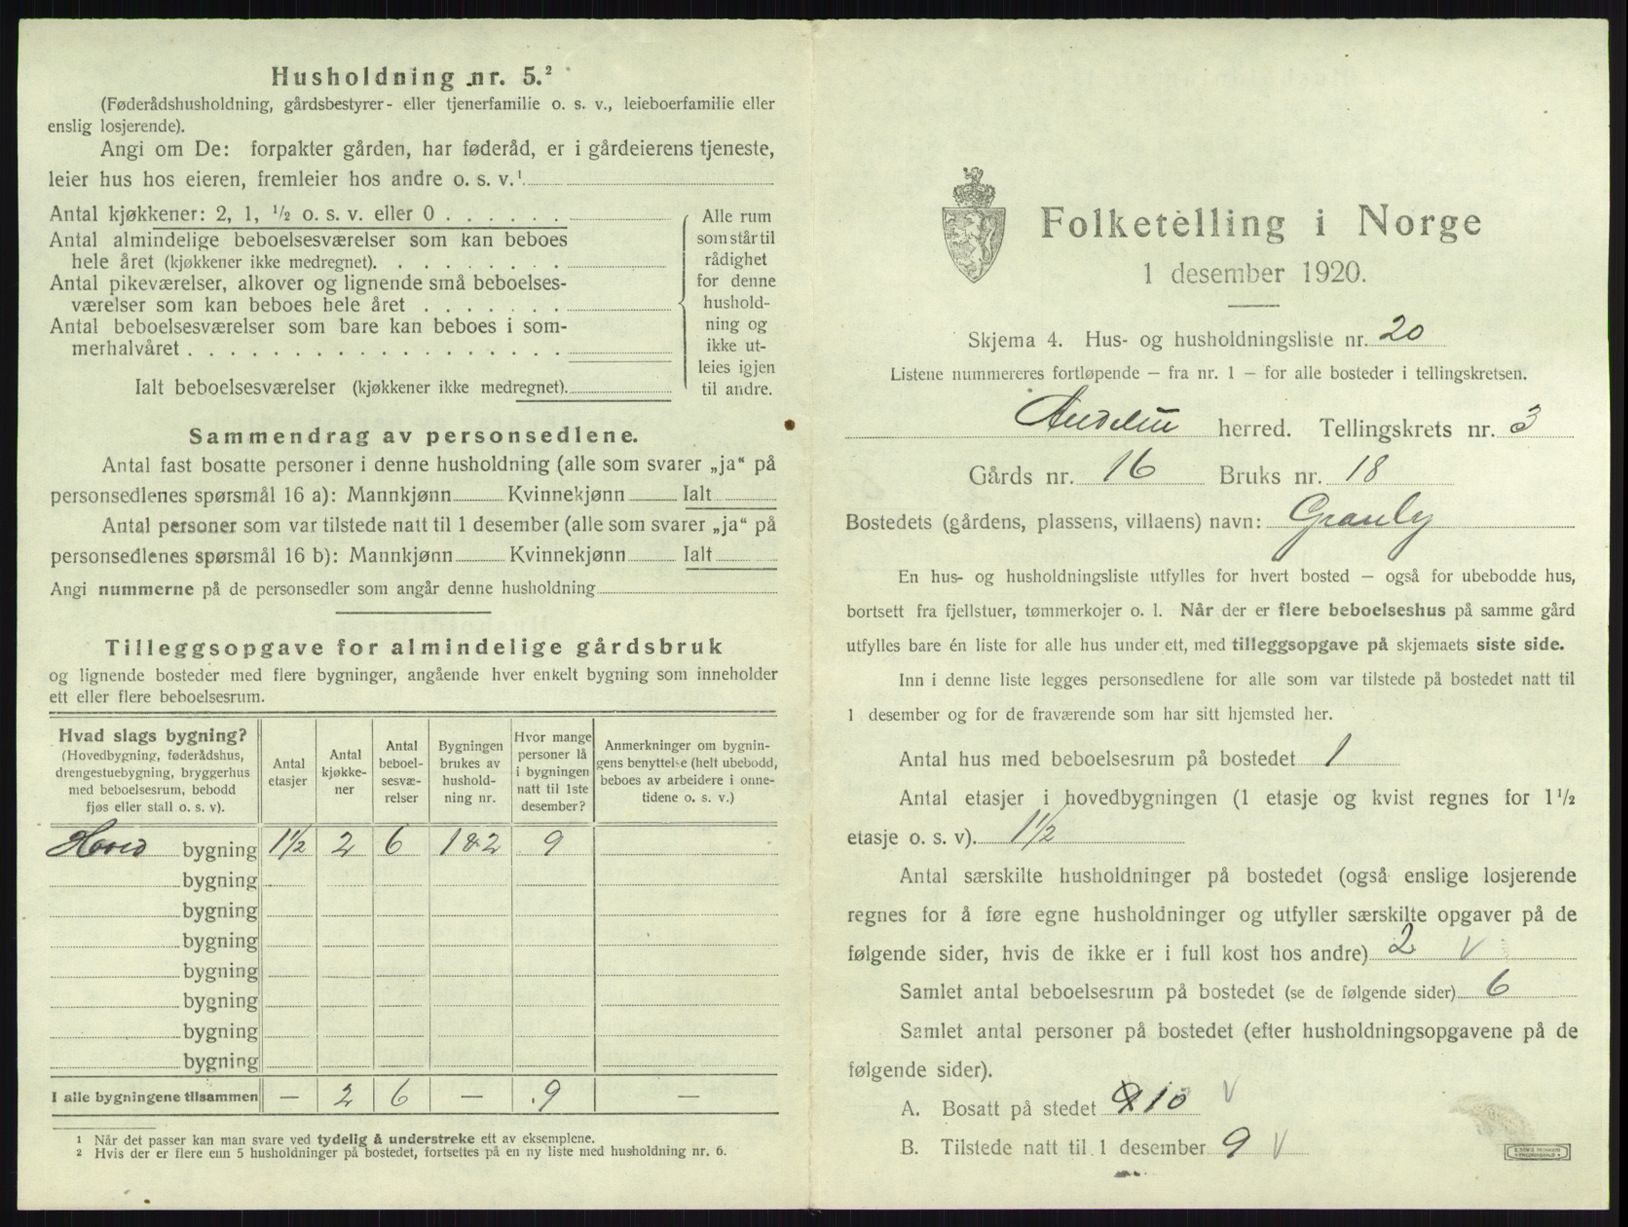 Husholdning nr. 5.²
(Føderådshusholdning, gårdsbestyrer- eller tjenerfamilie o. s. v., leieboerfamilie eller
enslig losjerende).
Angi om De: forpakter gården, har føderåd, er i gårdeierens tjeneste,
leier hus hos eieren, fremleier hos andre o. s. v.¹
Antal kjøkkener: 2, 1, ½ o. s. v. eller 0
Antal almindelige beboelsesværelser som kan beboes
hele året (kjøkkener ikke medregnet).
Antal pikeværelser, alkover og lignende små beboelses-
værelser som kan beboes hele året
Antal beboelsesværelser som bare kan beboes i som-
merhalvåret
Ialt beboelsesværelser (kjøkkener ikke medregnet).
Alle rum
som står til
rådighet
for denne
hushold-
ning og
ikke ut-
leies igjen
til andre.
Sammendrag av personsedlene.
Antal fast bosatte personer i denne husholdning (alle som svarer „ja“ på
personsedlenes spørsmål 16 a): Mannkjønn Kvinnekjønn Ialt
Antal personer som var tilstede natt til 1 desember (alle som svarer „ja“ på
personsedlenes spørsmål 16 b): Mannkjønn Kvinnekjønn Ialt
Angi nummerne på de personsedler som angår denne husholdning
Tilleggsopgave for almindelige gårdsbruk
og lignende bosteder med flere bygninger, angående hver enkelt bygning som inneholder
ett eller flere beboelsesrum.
Hvad slags bygning?
(Hovedbygning, føderådshus,
drengestuebygning, bryggerhus
med beboelsesrum, bebodd
fjøs eller stall o. s. v).
Antal
etasjer
Antal
kjøkke-
ner
Antal
beboel-
sesvæ-
relser
Bygningen
brukes av
hushold-
ning nr.
Hvor mange
personer lå
i bygningen
natt til 1ste
desember?
Anmerkninger om bygnin-
gens benyttelse (helt ubebodd,
beboes av arbeidere i onne-
tidene o. s. v.)
Hoved bygning 1½ 2 6 1&2 9
bygning
bygning
bygning
bygning
bygning
bygning
bygning
I alle bygningene tilsammen — 2 6 — 9 —
¹ Når det passer kan man svare ved tydelig å understreke ett av eksemplene.
² Hvis der er flere enn 5 husholdninger på bostedet, fortsettes på en ny liste med husholdning nr. 6.
Folketelling i Norge
1 desember 1920.
Skjema 4. Hus- og husholdningsliste nr. 20
Listene nummereres fortløpende — fra nr. 1 — for alle bosteder i tellingskretsen.
herred. Tellingskrets nr. 3
Gårds nr. 16 Bruks nr. 18
Bostedets (gårdens, plassens, villaens) navn: Granly
En hus- og husholdningsliste utfylles for hvert bosted — også for ubebodde hus,
bortsett fra fjellstuer, tømmerkojer o. l. Når der er flere beboelseshus på samme gård
utfylles bare én liste for alle hus under ett, med tilleggsopgave på skjemaets siste side.
Inn i denne liste legges personsedlene for alle som var tilstede på bostedet natt til
1 desember og for de fraværende som har sitt hjemsted her.
Antal hus med beboelsesrum på bostedet 1
Antal etasjer i hovedbygningen (1 etasje og kvist regnes for 1½
etasje o. s. v). 1½
Antal særskilte husholdninger på bostedet (også enslige losjerende
regnes for å føre egne husholdninger og utfyller særskilte opgaver på de
følgende sider, hvis de ikke er i full kost hos andre) 2 v
Samlet antal beboelsesrum på bostedet (se de følgende sider) 6
Samlet antal personer på bostedet (efter husholdningsopgavene på de
følgende sider).
A. Bosatt på stedet 10 v
B. Tilstede natt til 1 desember 9 v